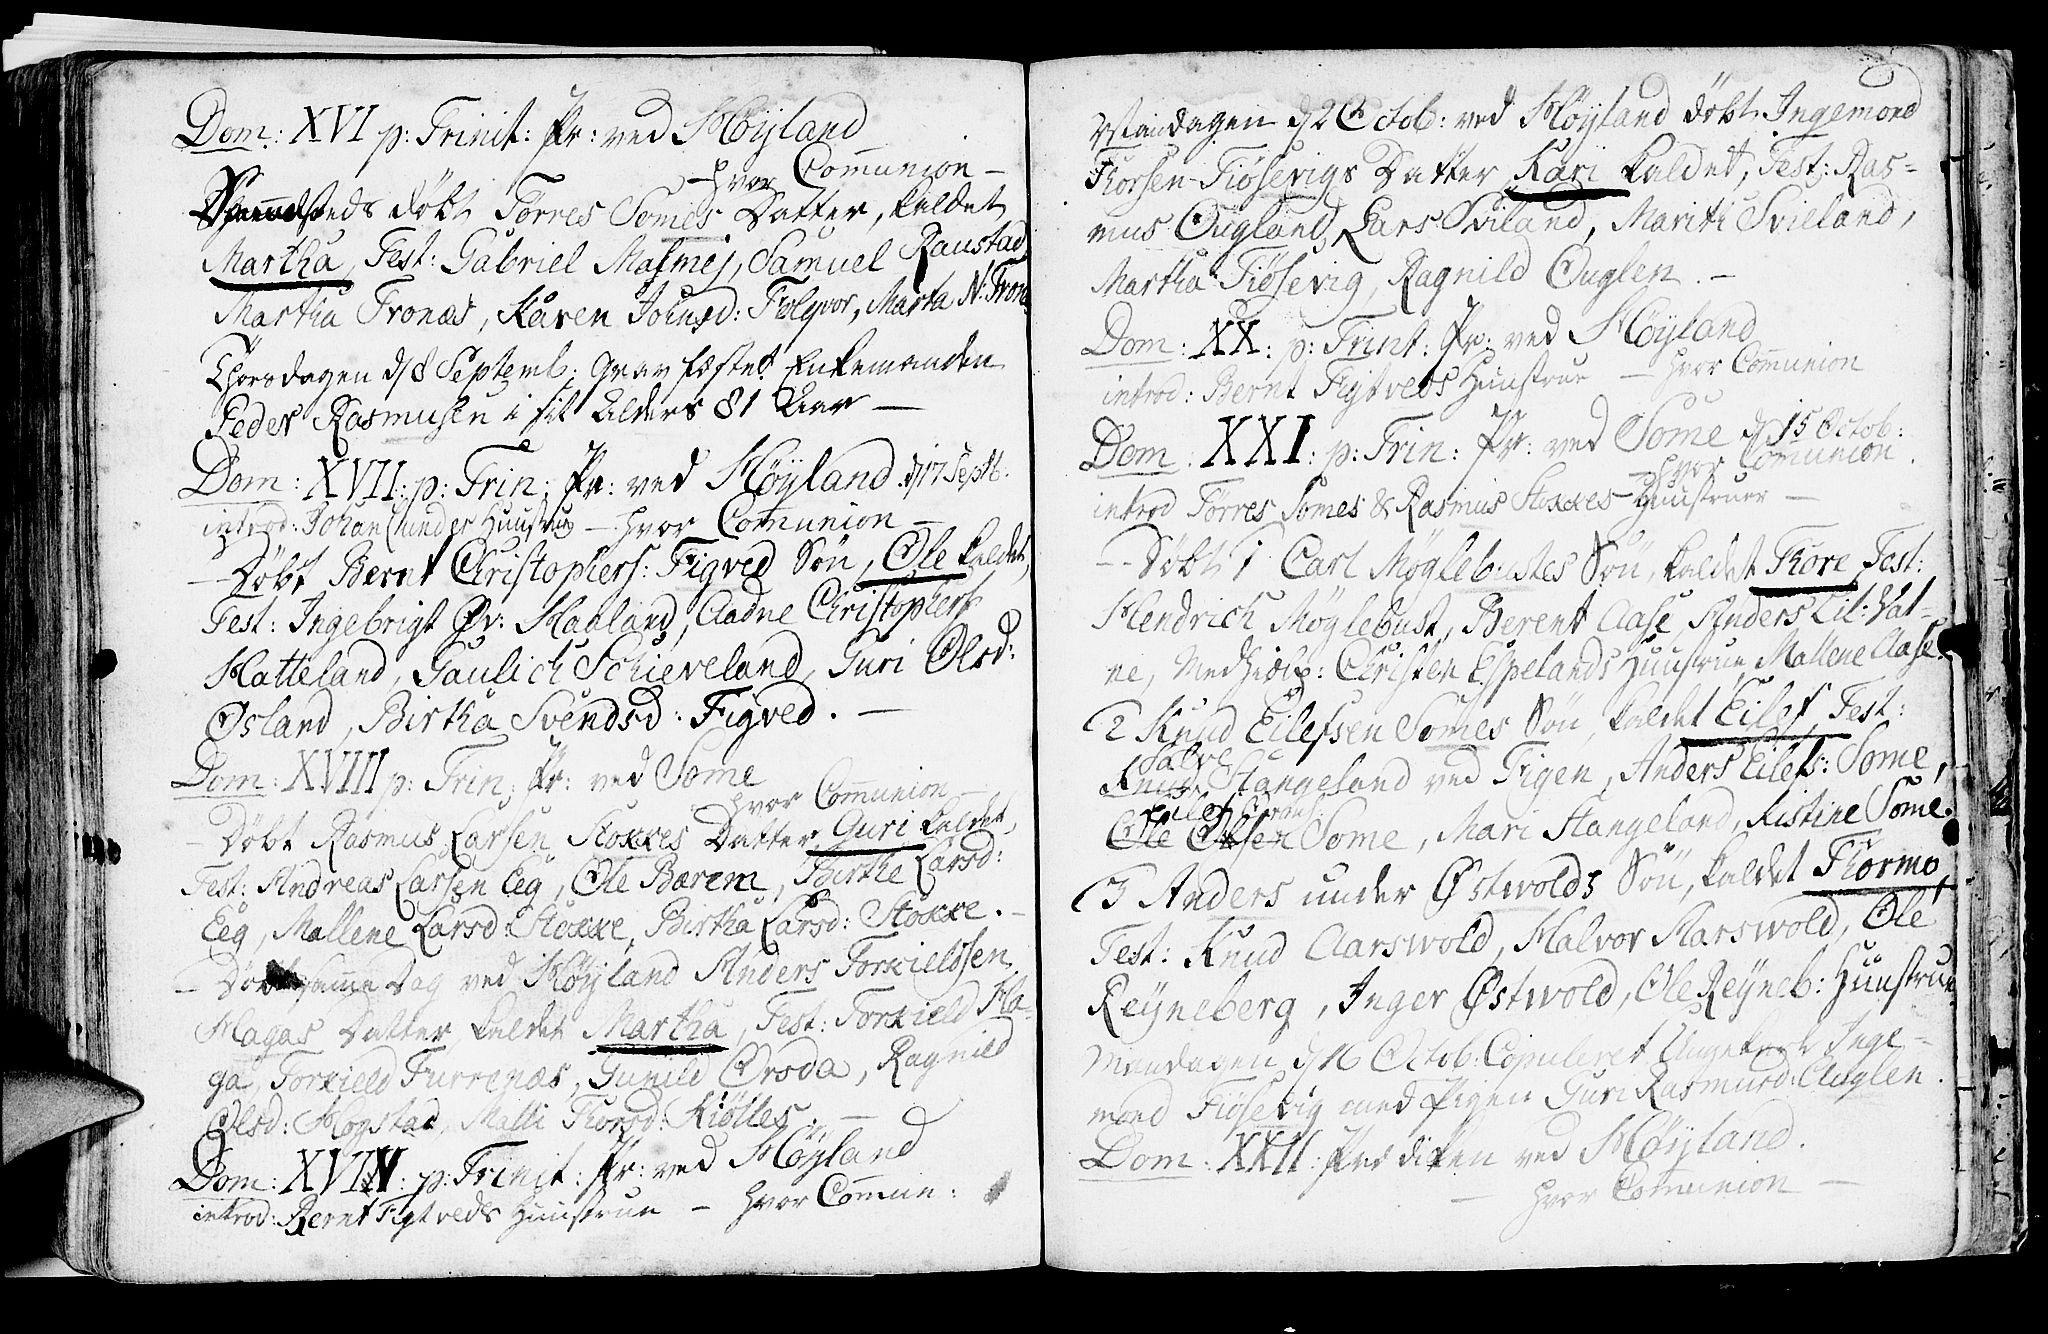 Dom: XVI p: Trinit: Pr: ved Höyland
hvor Communion –
Sammesteds döbt Törres Somes Datter, kaldet
Martha, Test: Gabriel Malmej, Samuel Raustad
Martha Tronæs, Karen Johnsd: Folqvor, Marta N: Trone
Thorsdagen d 8 Septemb: Grav fæstet Enkemanden
Peder Rasmusen i sit Alders 81 Aar –
Dom: XVII: p: Trin: Pr: ved Höyland d 17 Septb:
introd: Johan Hunstrue – hvor Communion –
– Döbt Bernt Christophers: Figved Sön, Ole kaldet,
Test: Ingebrigt Øv: Haaland, Aadne Christophers
Hatteland, Gaulich Schieveland, Guri Olsd:
Osland, Birtha Svendsd: Figved. –
Dom: XVIII p: Trin: Pr: ved Some
hvor Communion –
– Döbt Rasmus Larsen Stoxxes Datter, Guri kaldet,
Test: Andreas Larsen Eeg, Ole Bærem, Birthe Larsd:
Eeg, Mallene Larsd: Stoxxe, Birtha Larsd: Stoxxe. –
– Döbt samme Dag ved Höyland Anders Torkieldsen
Hagas Datter kaldet Martha, Test: Torkield Ha-
ga, Torkield Furrenæs, Gunild Orsda, Ragnild
Olsd: Hogstad, Malli Thorsd: Kiölles. –
Dom: XVIV: p: Trinit: Pr: ved Höyland
introd: Bernt Figtveds Hunstrue – hvor Commun:
dagen d 2 Octob: ved Höyland döbt Ingemond
Thorsen Fiösevigs Datter Kari kaldet, Test: Ras-
mus Ougland, Lars Sviland, Mariti Svieland,
Martha Fiösevig, Ragnild Ouglen. –
Dom: XX: p: Trint: Pr: ved Höyland
introd: Bernt Figtveds Hunstrue – hvor Communion
Dom: XXI: p: Trin: Pr: ved Some d 15 Octob:
hvor Communion.
introd Törres Somes & Rasmus Stoxxes Hunstruer –
– Döbt 1 Carl Möglebustes Sön, kaldet Thore Test:
Hendrich Möglebust, Berent Aase, Anders Lil: Vat-
ne, Christen Espelands Hunstrue, Mallene Aase.
2 Knud Eilefsen Somes Sön, kaldet Eilef, Test:
Salve
Knud Stangeland ved Tigen, Anders Eilefs: Some,
Ole Olsen Some, Mari Stangeland, Kistine Some.
3 Anders under Østwolds Sön, kaldet Thormo,
Test: Knud Aarswold, Halvor Aarswold, Ole
Reyneberg, Inger Østwold, Ole Reyneb: Hunstrue
Mandagen d 16 Octob: Copuleret Ungekarl Inge-
mond Fiösevig med Pigen Guri Rasmusd: Auglen.
Dom: XXII: Prædiken ved Höyland.
– hvor Communion –